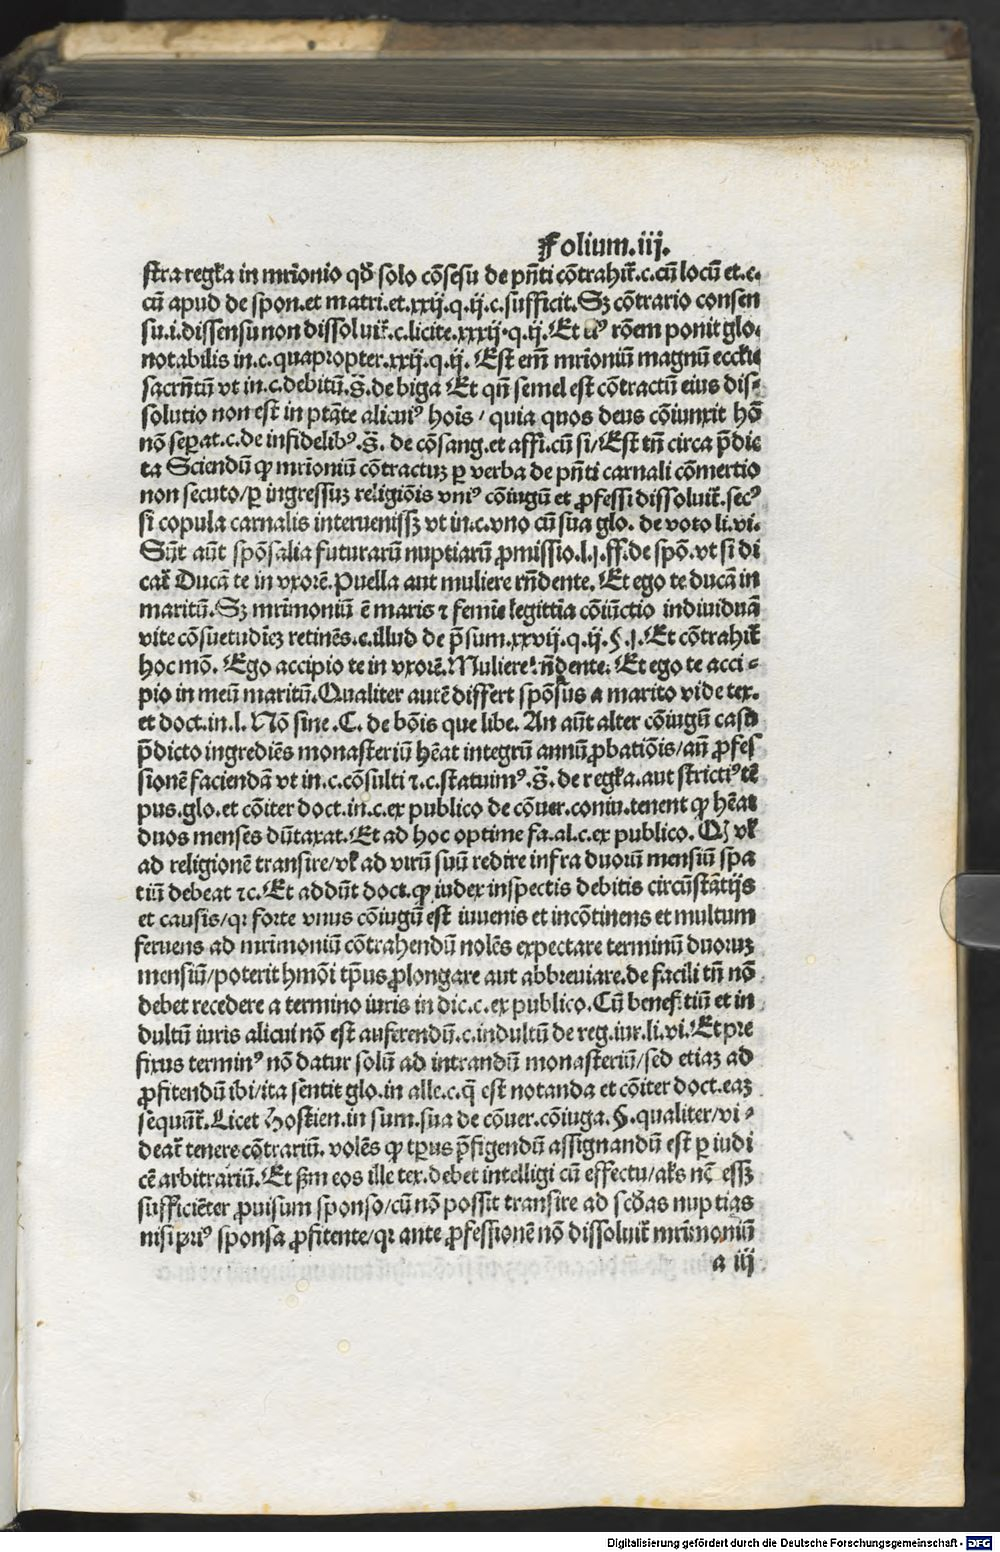 Folium.iij.
stra regla in mrīonio qđ solo cōsēsu de pñti cōtrahit̃.c.cū locū et.c.
cū apud de spon.et matri.et.xxij.q.ij.c.sufficit.Sꝫ cōtrario consen
su.i.dissensu non dissoluit̃.c.licite.xxxij.q.ij.Et rōem ponit glo.
notabilis in.c.quapropter.xxij.q.ij. Est em̄ mrīoniū magnū eccłie
sacrñtū vt in.c.debitū.s̃.de biga Et qñ semel est cōtractū eius dis⸗
solutio non est in ptāte alicuiꝰ hoīs / quia quos deus cōiunxit hō
nō sepat.c.de infidelibꝰ.s̃. de cōsang.et affi.cū si/Est tñ circa p̄dic
ta Sciendū ꝙ mrīoniū cōtractuꝫ ꝑ verba de pñti carnali cōmertio
non secuto/ꝑ ingressuꝫ religiōis vniꝰ cōiugū et ꝓfessi dissoluit̃.secꝰ
si copula carnalis interuenissꝫ vt in.c.vno cū sua glo. de voto li.vi.
Sūt aūt spōsalia futurarū nuptiarū ꝓmissio.l.j.ff.de spō.vt si di
cat̃ Ducā te in vxorē.Puella aut muliere rñdente. Et ego te ducā in
maritū.Sꝫ mrīmoniū ē maris ⁊ femīe legittīa cōiūctio indiuiduā
vite cōsuetudīeꝫ retinēs.c.illud de p̄sum.xxvij.q.ij.§.j.Et cōtrahit̃
hoc mō. Ego accipio te in vxorē.Muliere rñdente. Et ego te acci⸗
pio in meū maritū.Qualiter autē differt spōsus a marito vide tex.
et doct.in.l. Nō sine .C. de bōis que libe. An aūt alter cōiugū casu
p̄dicto ingrediēs monasteriū hēat integrū annū ꝓbatiōis/an ꝓfes
sionē faciendā vt in.c.cōsulti ⁊.c.statuimꝰ.s̃.de regła.aut strictiꝰ tē
pus.glo.et cōiter doct.in.c.ex publico de cōuer.coniu.tenent ꝙ hēat
duos menses dūtaxat.Et ad hoc optime fa.al.c.ex publico. Qꝫ vł
ad religionē transire/vł ad virū suū redire infra duorū mensiū spa
tiū debeat ⁊c.Et addūt doct.ꝙ iudex inspectis debitis circūstātijs
et causis/qꝛ forte vnus cōiugū est iuuenis et incōtinens et multum
feruens ad mrīmoniū cōtrahendū nolēs expectare terminū duoruꝫ
mensiū/poterit hmōi tp̄us ꝓlongare aut abbreuiare.de facili tñ nō
debet recedere a termino iuris in dic.c.ex publico.Cū benefitiū et in
dultū iuris alicui nō est auferendū.c.indultū de reg.iur.li.vi.Et pre
fixus terminꝰ nō datur solū ad intrandū monasteriū/sed etiaꝫ ad
ꝓfitendū ibi/ita sētit glo.in alle.c.q̄ est notanda et cōiter doct.eaꝫ
sequūt̃.Licet Hostien.in sum.sua de cōuer.cōiuga.§.qualiter/vi⸗
deat̃ tenere cōtrariū. volēs ꝙ tp̄us p̄figendū assignandū est ꝑ iudi
cē arbitrariū.Et ßm eos ille tex.debet intelligi cū effectu/ałs nō essꝫ
sufficiēter ꝓuisum sponso/cū nō possit transire ad scđas nuptias
nisi priꝰ sponsa ꝓfitente/qꝛ ante ꝓfessionē nō dissoluit̃ mrīmoniū
a iij
Digitalisierung gefördert durch die Deutsche Forschungsgemeinschaft - DFG